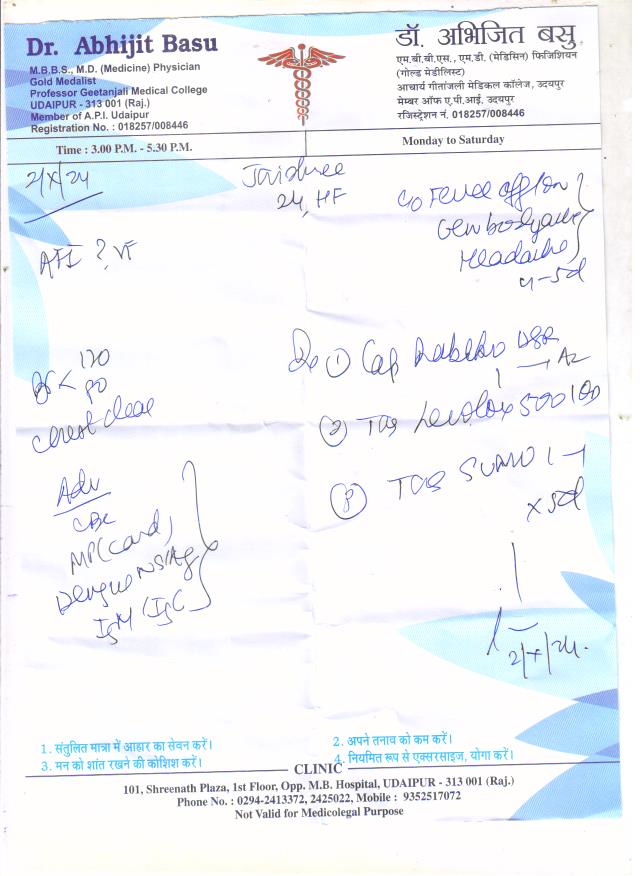 Dr. Abhijit Basu
M.B.B.S., M.D. (Medicine) Physician
Gold Medalist
Professor Geetanjali Medical College
UDAIPUR - 313 001 (Raj.)
Member of A.P.I. Udaipur
Registration No. : 018257/008446
डॉ. अभिजित बसु
एम.बी.बी.एस., एम.डी. (मेडिसिन) फिजिशियन
(गोल्ड मेडीलिस्ट)
आचार्य गीतांजली मेडिकल कॉलेज, उदयपुर
मेम्बर ऑफ ए.पी.आई. उदयपुर
रजिस्ट्रेशन नं. 018257/008446
Time : 3.00 P.M. - 5.30 P.M.
Monday to Saturday
2/X/24
24, HF
c/o Fever off/on
Gen bodyache
Headache
4-5d
AFI ? VF
120
80
Chest clear
Adv
CBC
MP (Card)
Dengue NS1Ag
IgM/IgG
Rx ① Cap DSR
② Tab 500 1 OD
③ Tab SUMO 1-1
x 5d
2/X/24.
1. संतुलित मात्रा में आहार का सेवन करें।
2. अपने तनाव को कम करें।
3. मन को शांत रखने की कोशिश करें।
4. नियमित रूप से एक्सरसाइज, योगा करें।
CLINIC
101, Shreenath Plaza, 1st Floor, Opp. M.B. Hospital, UDAIPUR - 313 001 (Raj.)
Phone No. : 0294-2413372, 2425022, Mobile : 9352517072
Not Valid for Medicolegal Purpose